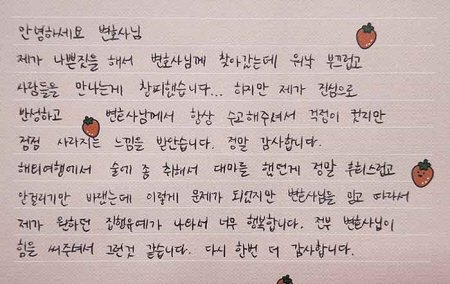 안녕하세요 변호사님
제가 나쁜짓을 해서 변호사님께 찾아갔는데 워낙 부끄럽고
사람들을 만나는게 창피했습니다... 하지만 제가 진심으로
반성하고 변호사님께서 항상 수고해주셔서 걱정이 컷지만
점점 사라지는 느낌을 받았습니다. 정말 감사합니다.
해외여행에서 술에 좀 취해서 대마를 했던게 정말 후회스럽고
안걸리기만 바랬는데 이렇게 문제가 되었지만 변호사님을 믿고 따라서
제가 원하던 집행유예가 나와서 너무 행복합니다. 전부 변호사님이
힘을 써주셔서 그런것 같습니다. 다시 한번 더 감사합니다.